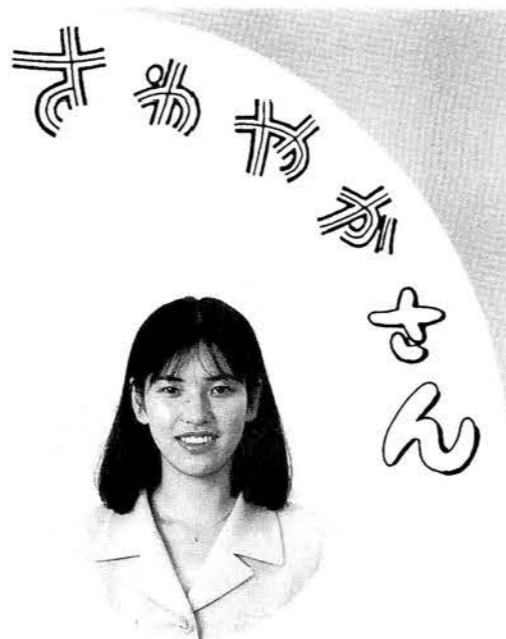 さわやかさん